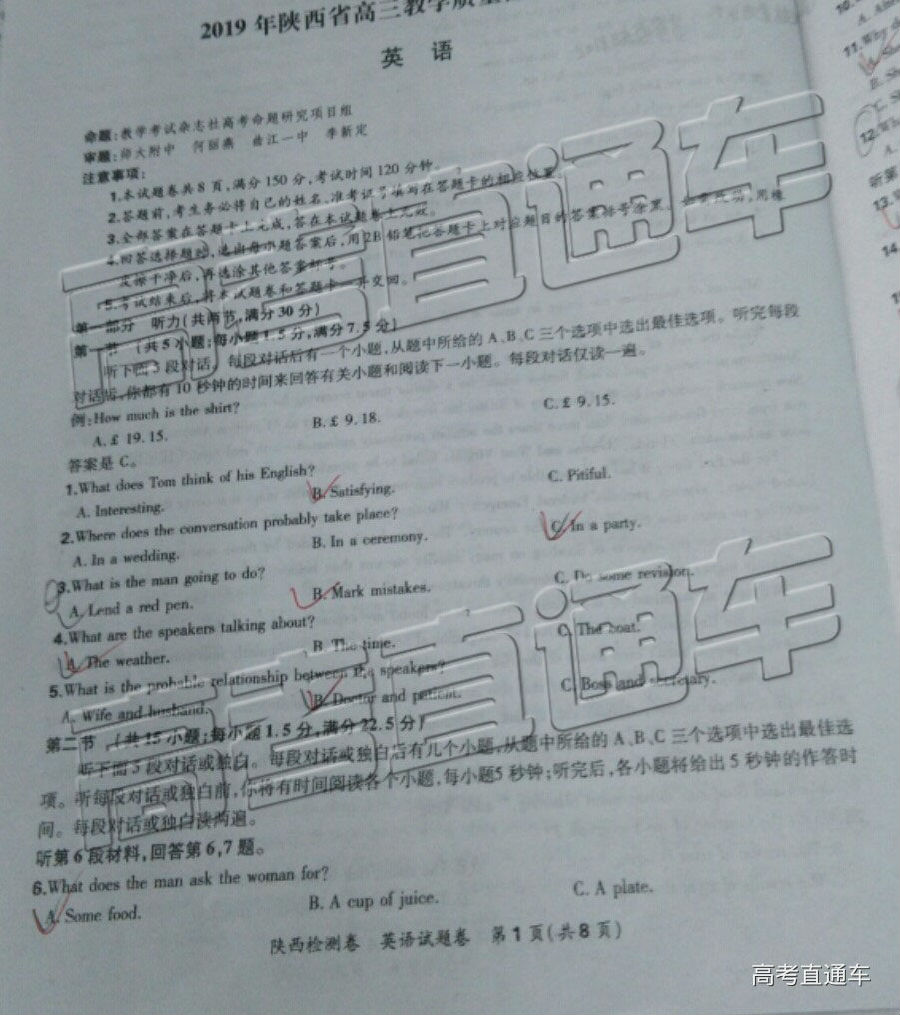 2019年陕西省高三教学质
英 语
命题:教学考试杂志社高考命题研究项目组
审题:师大附中 何丽燕 曲江一中 李新定
注意事项:
1.本试题卷共8页,满分150分,考试时间120分钟。
2.答题前,考生务必将自己的姓名、准考证号填写在答题卡的相应位置。
3.全部答案在答题卡上完成,答在本试题卷上无效。
4.回答选择题时,选出每小题答案后,用2B铅笔把答题卡上对应题目的答案标号涂黑。如需改动,用橡
皮擦干净后,再选涂其他答案标号。
5.考试结束后,将本试题卷和答题卡一并交回。
第一部分 听力(共两节,满分30分)
第一节 (共5小题;每小题1.5分,满分7.5分)
听下面5段对话。每段对话后有一个小题,从题中所给的A、B、C三个选项中选出最佳选项。听完每段
对话后,你都有10秒钟的时间来回答有关小题和阅读下一小题。每段对话仅读一遍。
例:How much is the shirt?
A.£ 19.15. B.£ 9.18. C.£ 9.15.
答案是C。
1.What does Tom think of his English?
A. Interesting. B. Satisfying. C. Pitiful.
2.Where does the conversation probably take place?
A. In a wedding. B. In a ceremony. C. In a party.
3.What is the man going to do?
A. Lend a red pen. B. Mark mistakes. C. Do some revision.
4.What are the speakers talking about?
A. The weather. B. The time. C. The boat.
5.What is the probable relationship between the speakers?
A. Wife and husband. B. Doctor and patient. C. Boss and secretary.
第二节 (共15小题;每小题1.5分,满分22.5分)
听下面5段对话或独白。每段对话或独白后有几个小题,从题中所给的A、B、C三个选项中选出最佳选
项。听每段对话或独白前,你将有时间阅读各个小题,每小题5秒钟;听完后,各小题将给出5秒钟的作答时
间。每段对话或独白读两遍。
听第6段材料,回答第6,7题。
6.What does the man ask the woman for?
A. Some food. B. A cup of juice. C. A plate.
陕西检测卷 英语试题卷 第1页(共8页)
10.
11.Why
12.
听第
13.
14.
高考直通车
高考直通车
高考直通车